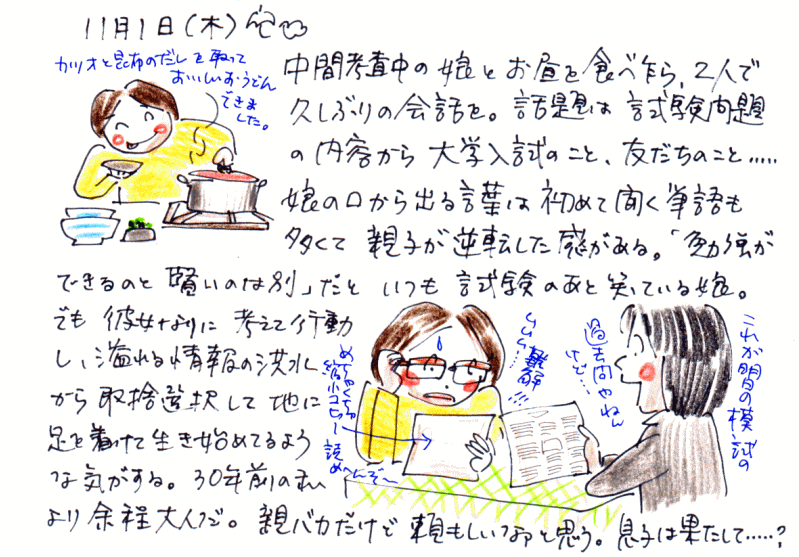 11月1日（木）
カツオと昆布のだしを取って
おいしいおうどん
できま
した。
中間考査中の娘とお昼を食べ乍ら、2人で
久しぶりの会話を。話題は試験問題
の内容から大学入試のこと、友だちのこと……
娘の口から出る言葉は初めて聞く単語も
多くて親子が逆転した感がある。「勉強が
できるのと賢いのは別」だといつも試験のあと笑っている娘。
でも彼女なりに考えて行動
し、溢れる情報の洪水
から取捨選択して地に
足を着けて生き始めてるよう
な気がする。30年前の私
より余程大人だ。親バカだけど頼もしいなァと思う。息子は果たして……？
めちゃくちゃ
縮小コピー読
め〜んぞ〜
難解!!!
過去問やねん
けど…
これが明日の模試の